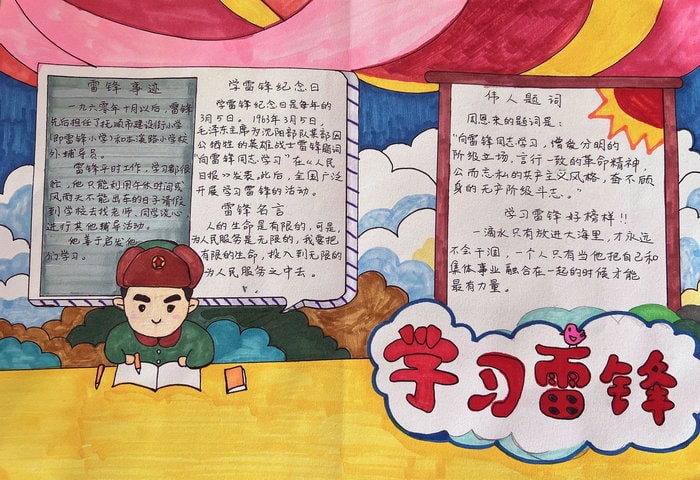 雷锋事迹
一九六零年十月以后,雷锋
先后担任了抚顺市建设街小学
(即雷锋小学)和本溪路小学校
外辅导员。
雷锋平时工作,学习都很
忙,他只能利用午休时间或
风雨天不能出车的日子请假
到学校去找老师,同学谈心
进行其他辅导活动。
他善于启发他
们学习。
学雷锋纪念日
学雷锋纪念日是每年的
3月5日。1963年3月5日,
毛泽东主席为沈阳部队某部因
公牺牲的英雄战士雷锋题词
"向雷锋同志学习"在《人民
日报》发表。此后,全国广泛
开展学习雷锋的活动。
雷锋名言
人的生命是有限的,可是,
为人民服务是无限的,我要把
有限的生命,投入到无限的
为人民服务之中去。
伟人题词
周恩来的题词是:
"向雷锋同志学习,憎爱分明的
阶级立场,言行一致的革命精神,
公而忘私的共产主义风格,奋不顾
身的无产阶级斗志。"
学习雷锋好榜样!!
一滴水只有放进大海里,才永远
不会干涸,一个人只有当他把自己和
集体事业融合在一起的时候才能
最有力量。
学习雷锋